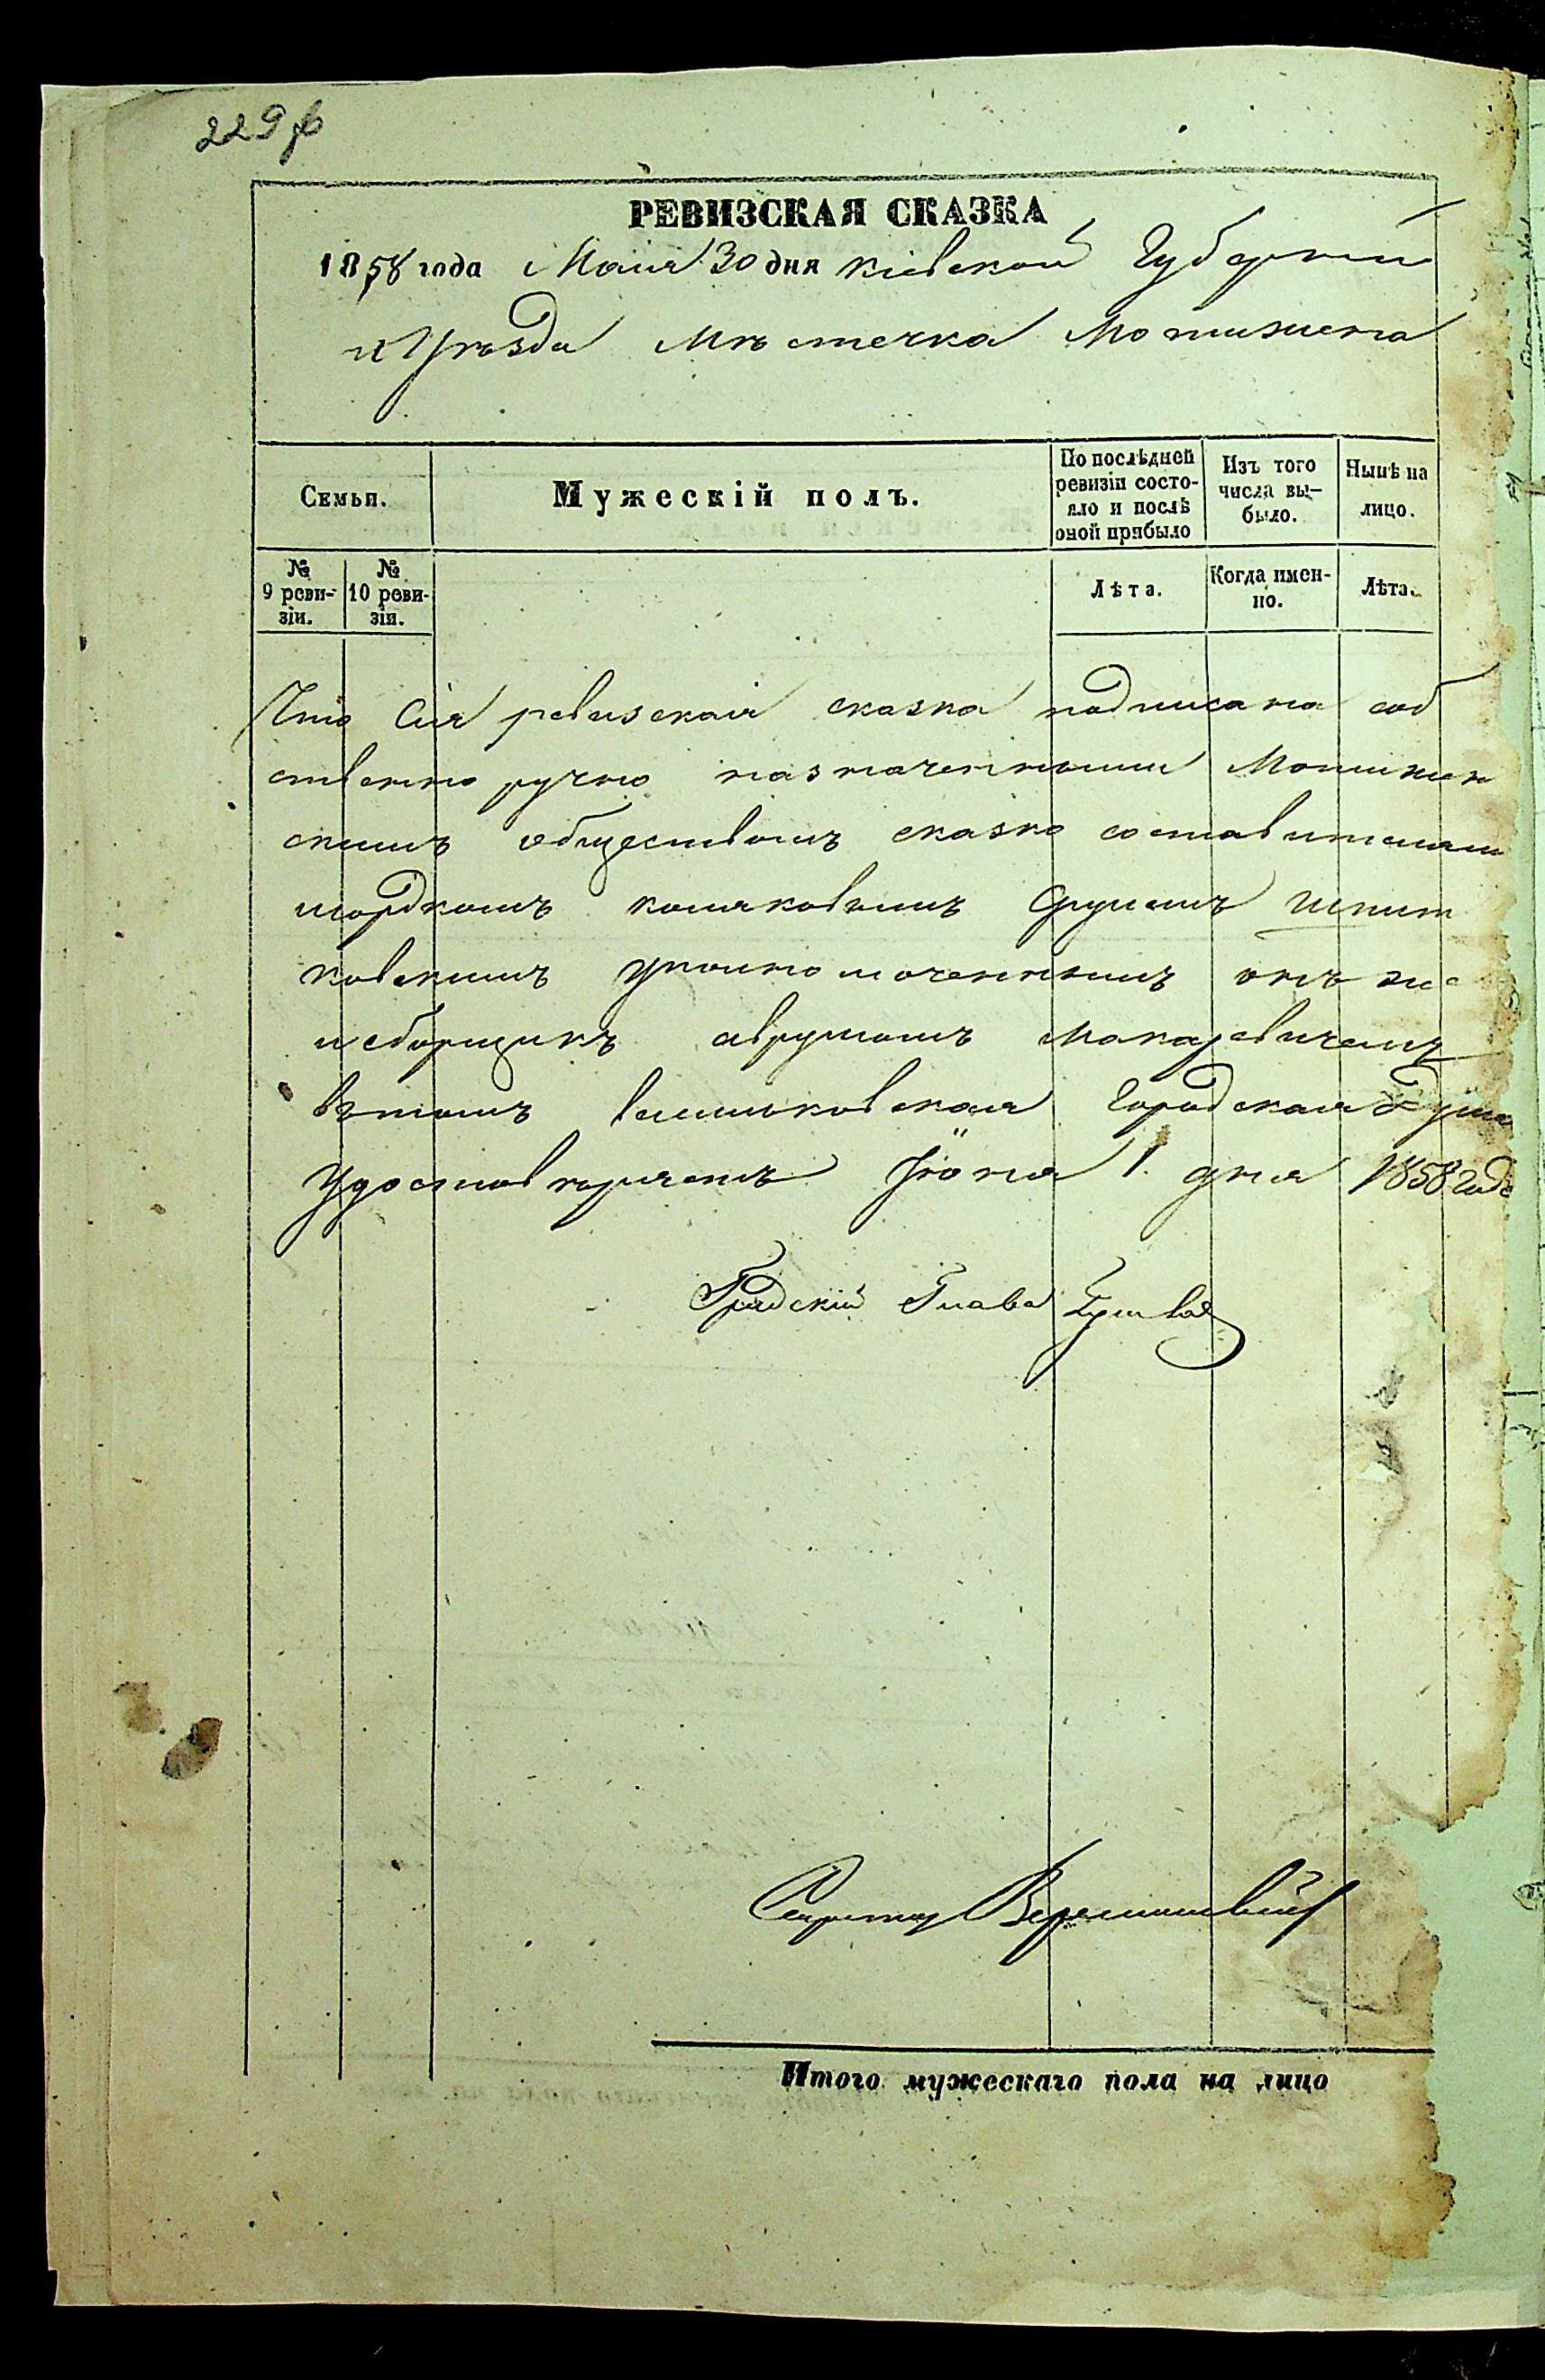 229 ф
РЕВИЗСКАЯ СКАЗКА
1858 года Маія 30 дня Кіевской Губерніи
и Уѣзда Мѣстечка Мотижина
Семьи.
Мужескій полъ.
По послѣдней ревизіи состо-
яло и послѣ
оной прибыло
Изъ того
числа вы-
было.
Нынѣ на
лицо.
№
9 реви-
зіи.
№
10 реви-
зіи.
Лѣта.
Когда имен-
но.
Лѣта.
Что Сія ревизская сказка подписана соб
ственно ручно назначенными Мотижин
скимъ обществомъ сказко составителями
мордкомъ Срулемъ Шпит
ковскимъ Уполномоченнымъ
и сборщикъ аврумомъ Макаревичемъ
вътомъ васильковская Городская Дума
Удостовѣряетъ Іюня 1. дня 1858 года
Градскій Глава
Секретарь
Итого мужескаго пола на лицо